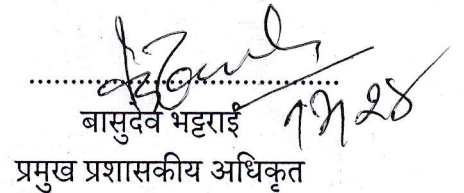 बासुदेव भट्टराई
प्रमुख प्रशासकीय अधिकृत